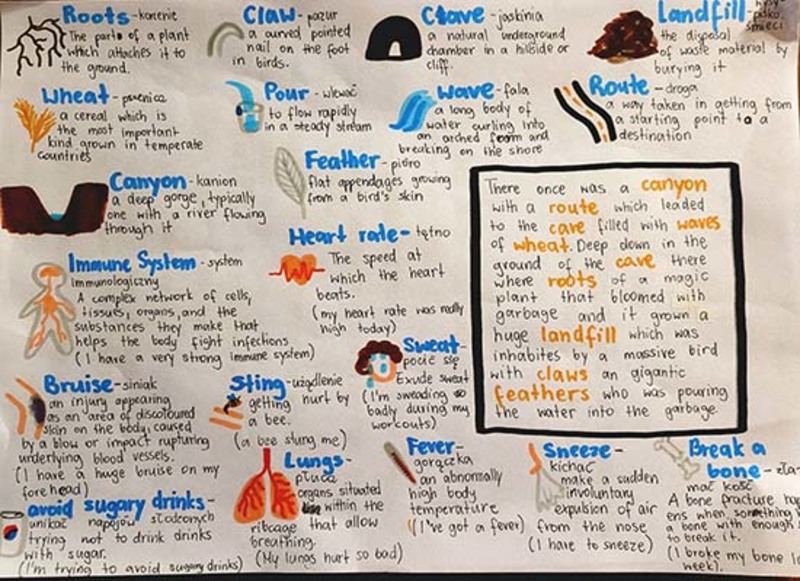 Roots - korzenie
The parts of a plant
which attaches it to
the ground.
Claw - pazur
a curved pointed
nail on the foot
in birds.
Cave - jaskinia
a natural underground
chamber in a hillside or
cliff.
Landfill -
wysy-
pisko
śmieci
the disposal
of waste material by
burying it
Wheat - pszenica
a cereal which is
the most important
kind grown in temperate
countries
Pour - wlewać
to flow rapidly
in a steady stream
Wave - fala
a long body of
water curling into
an arched form and
breaking on the shore
Route - droga
a way taken in getting from
a starting point to a
destination
Canyon - kanion
a deep gorge, typically
one with a river flowing
through it
Feather - pióro
flat appendages growing
from a bird's skin
Heart rate - tętno
The speed at
which the heart
beats.
(my heart rate was really
high today)
Immune System - system
immunologiczny
A complex network of cells,
tissues, organs, and the
substances they make that
helps the body fight infections
(I have a very strong immune system)
There once was a canyon
with a route which leaded
to the cave filled with waves
of wheat. Deep down in the
ground of the cave there
where roots of a magic
plant that bloomed with
garbage and it grown a
huge landfill which was
inhabites by a massive bird
with claws an gigantic
feathers who was pouring
the water into the garbage
Sweat -
pocić się
Exude sweat
(I'm sweading so
badly during my
workouts)
Bruise - siniak
an injury appearing
as an area of discoloured
skin on the body, caused
by a blow or impact rupturing
underlying blood vessels.
(I have a huge bruise on my
forehead)
Sting - użądlenie
getting hurt by
a bee.
(a bee stung me)
Lungs -
płuca
organs situated
within the
ribcage that allow
breathing.
(My lungs hurt so bad)
Fever -
gorączka
an abnormally
high body
temperature
(I've got a fever)
Sneeze -
kichać
make a sudden
involuntary
expulsion of air
from the nose
(I have to sneeze)
Break a
bone - zła-
mać kość
A bone fracture happ
ens when something
a bone with enough
to break it.
(I broke my bone
week).
avoid sugary drinks -
unikać napojów słodzonych
trying not to drink drinks
with sugar.
(I'm trying to avoid sugary drinks)